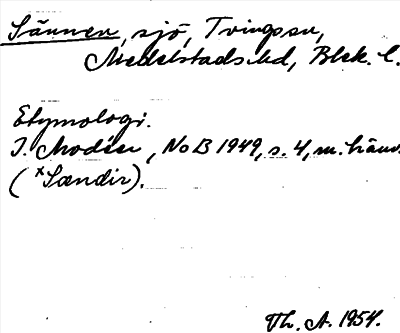 Sännen, sjö, Tvingssn,
Medelstads hd, Blek. l.
Etymologi.
I. Modéer, NoB 1949, s. 4, m. hänv.
(*Sændir).
Th. A. 1954.